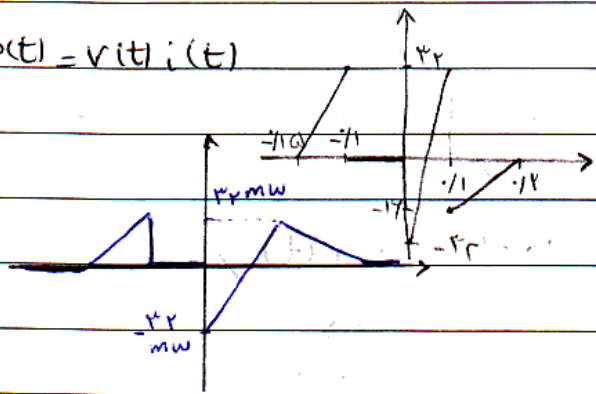 p(t) = v(t) i(t)
۳۲
-۰/۱۵
-۰/۱
۰/۱
۰/۲
-۱۶
-۳۲
۳۲ mw
-۳۲
mw